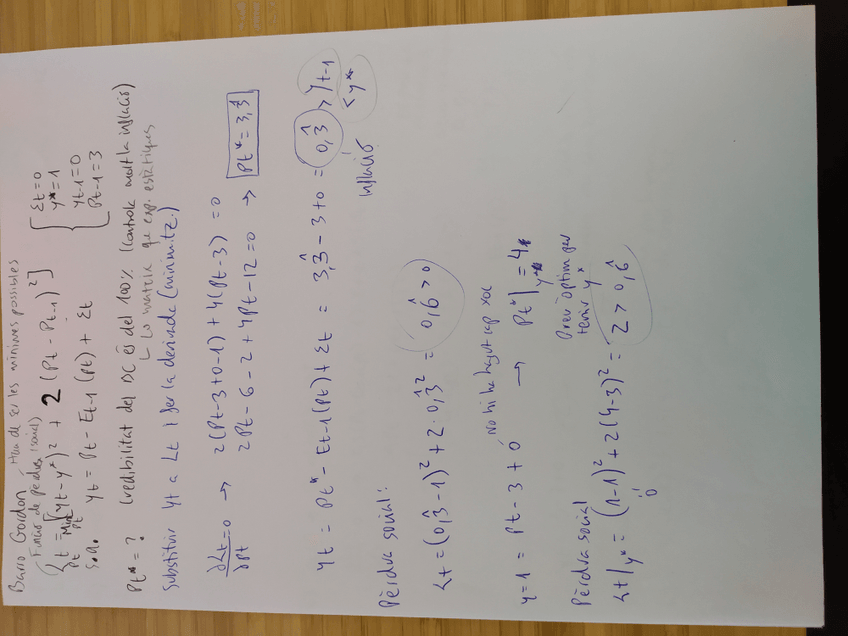 Barro Gordon → Han de ser les mínimes possibles
Funció de pèrdua (social)
Lt = Min [(yt - y*)² + 2 (Pt - Pt-1)²]
Pt
s.a. yt = Pt - Et-1 (Pt) + Σt
{ Σt = 0
y* = 1
yt-1 = 0
Pt-1 = 3
Pt* = ? Credibilitat del BC és del 100% (Controla molt la inflació)
↳ Lo mateix que exp. estàtiques
Substituir yt a Lt i fer la derivada (minimitz.)
∂Lt/∂Pt = 0 → 2(Pt - 3 + 0 - 1) + 4(Pt - 3) = 0
2Pt - 6 - 2 + 4Pt - 12 = 0 → Pt* = 3,3̂
yt = Pt* - Et-1 (Pt) + Σt = 3,3̂ - 3 + 0 = 0,3̂ > yt-1
< y*
inflació
Pèrdua social:
Lt = (0,3̂ - 1)² + 2 · 0,3̂² = 0,6̂ > 0
No hi ha hagut cap xoc
y = 1 = Pt - 3 + 0 → Pt*|y* = 4
Preu òptim per
tenir y*
Pèrdua social
Lt|y* = (1 - 1)² + 2(4 - 3)² = 2 > 0,6̂
0